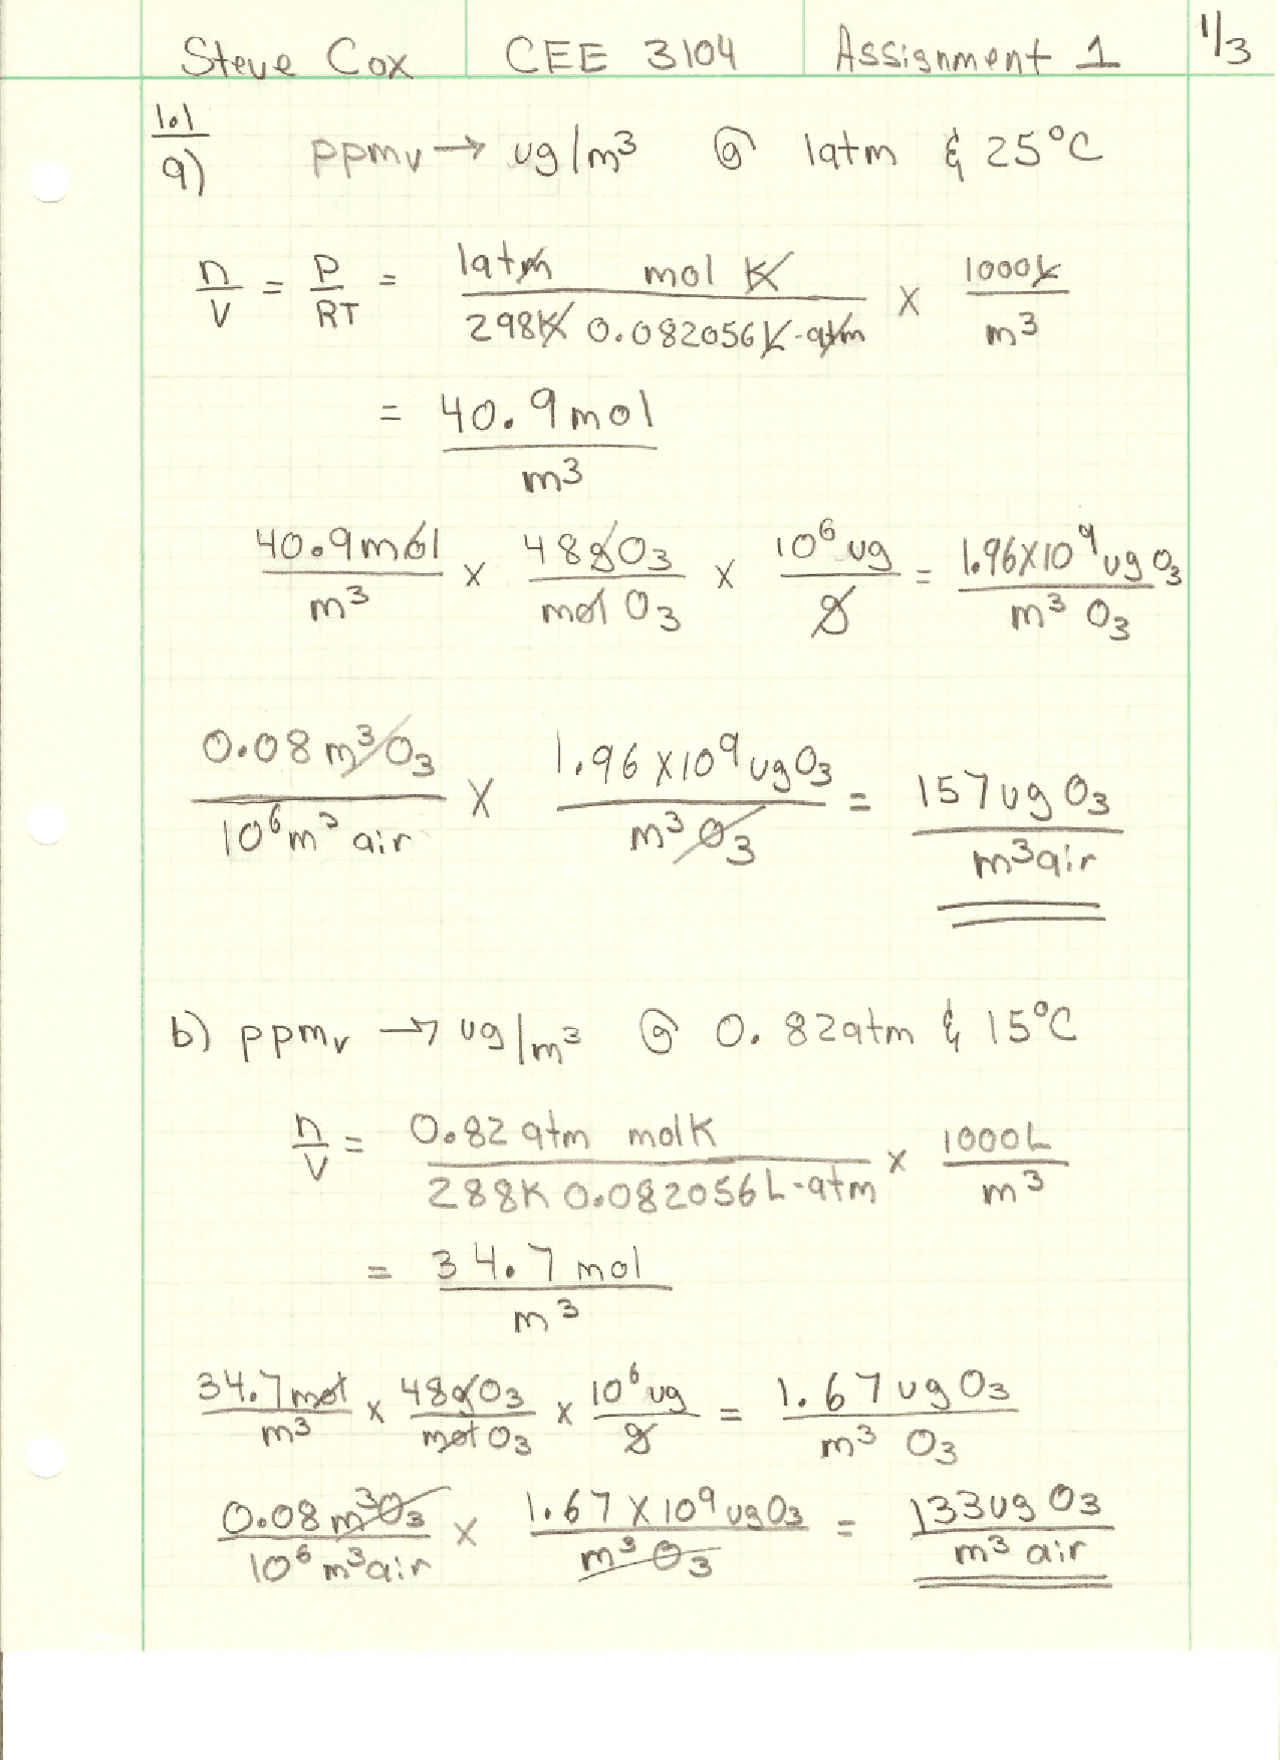 Steve Cox CEE 3104 Assignment 1 1/3
1.1
a) ppmv → ug/m³ @ 1atm & 25°C
n/V = P/RT = 1atm mol K / 298K 0.082056 L-atm × 1000L / m³
= 40.9 mol / m³
40.9 mol / m³ × 48g O₃ / mol O₃ × 10⁶ ug / g = 1.96×10⁹ ug O₃ / m³ O₃
0.08 m³ O₃ / 10⁶ m³ air × 1.96 ×10⁹ ug O₃ / m³ O₃ = 157 ug O₃ / m³ air
b) ppmv → ug/m³ @ 0.82atm & 15°C
n/V = 0.82 atm mol K / 288K 0.082056 L-atm × 1000L / m³
= 34.7 mol / m³
34.7 mol / m³ × 48g O₃ / mol O₃ × 10⁶ ug / g = 1.67 ug O₃ / m³ O₃
0.08 m³ O₃ / 10⁶ m³ air × 1.67 × 10⁹ ug O₃ / m³ O₃ = 133 ug O₃ / m³ air